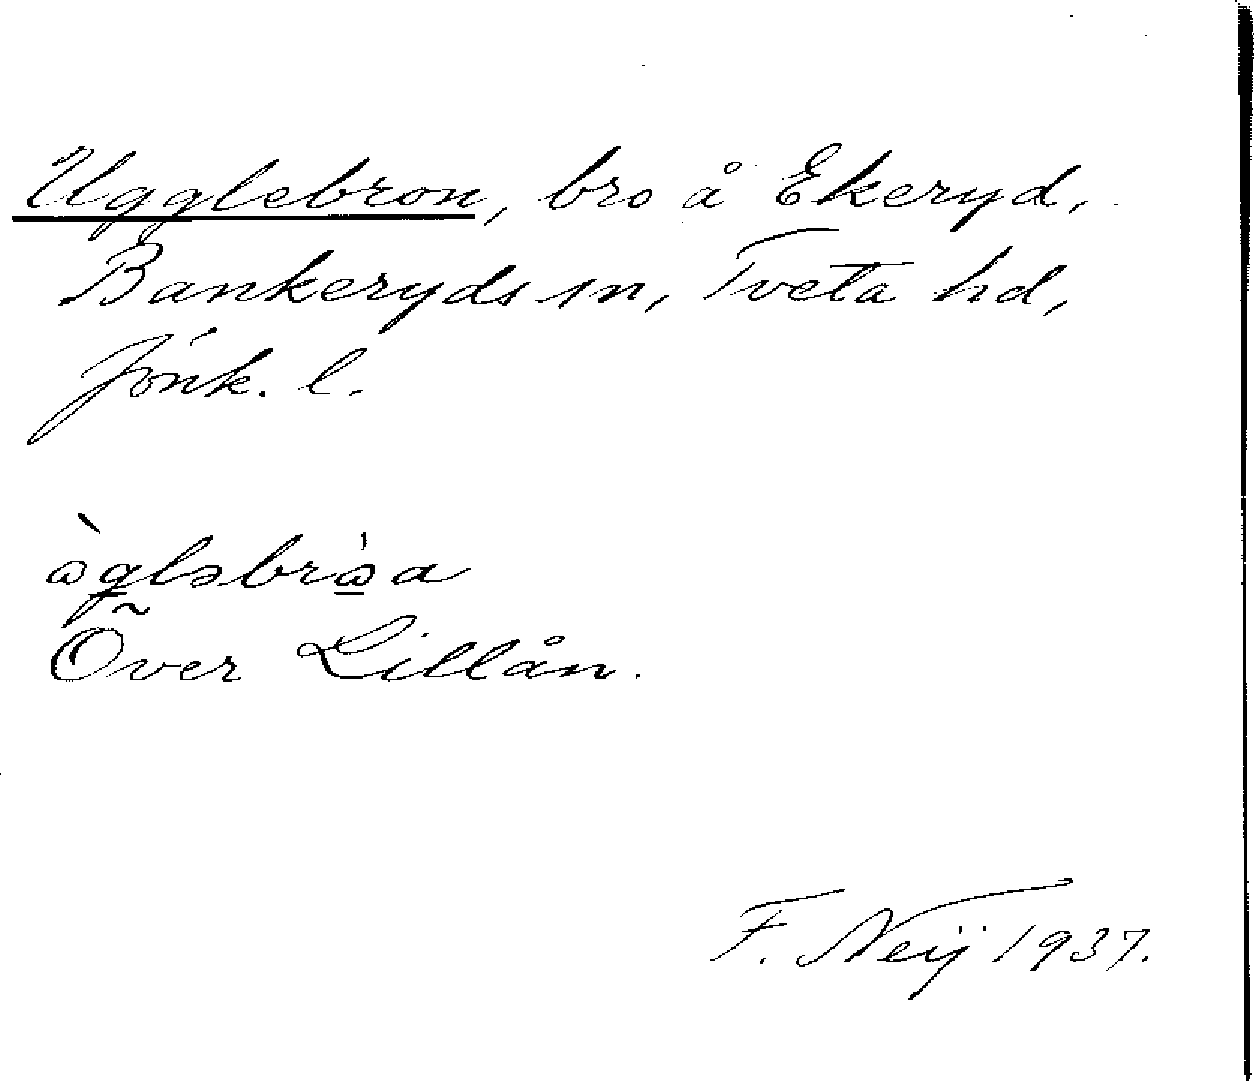 Ugglebron, bro å Ekeryd,
Bankeryds sn, Tveta hd,
Jönk. l.
ɷ̀gləbrɷ̲̀a
Över Lillån.
F. Neij 1937.